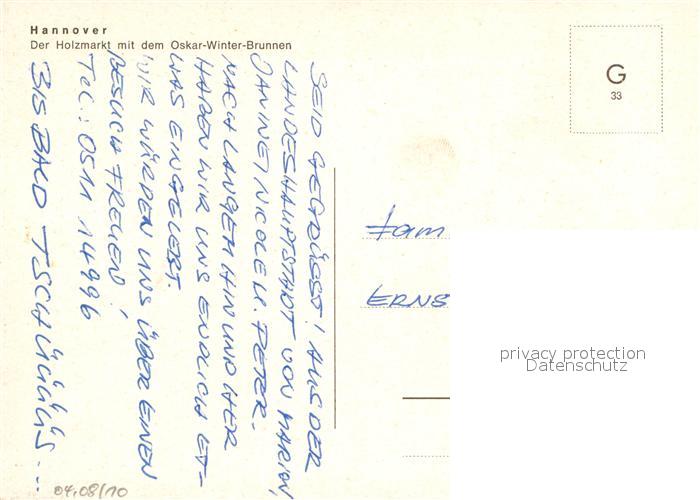 Hannover
Der Holzmarkt mit dem Oskar-Winter-Brunnen
G
33
SEID GEGRÜSST! AUS DER
LANDESHAUPTSTADT VON MARION,
JANINE, NICOLE U. PETER.
NACH LANGEM HIN UND HER
HABEN WIR UNS ENDLICH ET-
WAS EINGELEBT.
WIR WÜRDEN UNS ÜBER EINEN
BESUCH FREUEN!
TEL.: 0511 14996
BIS BALD TSCHÜÜÜÜS...
Fam
ERNS
privacy protection
Datenschutz
04.08/10